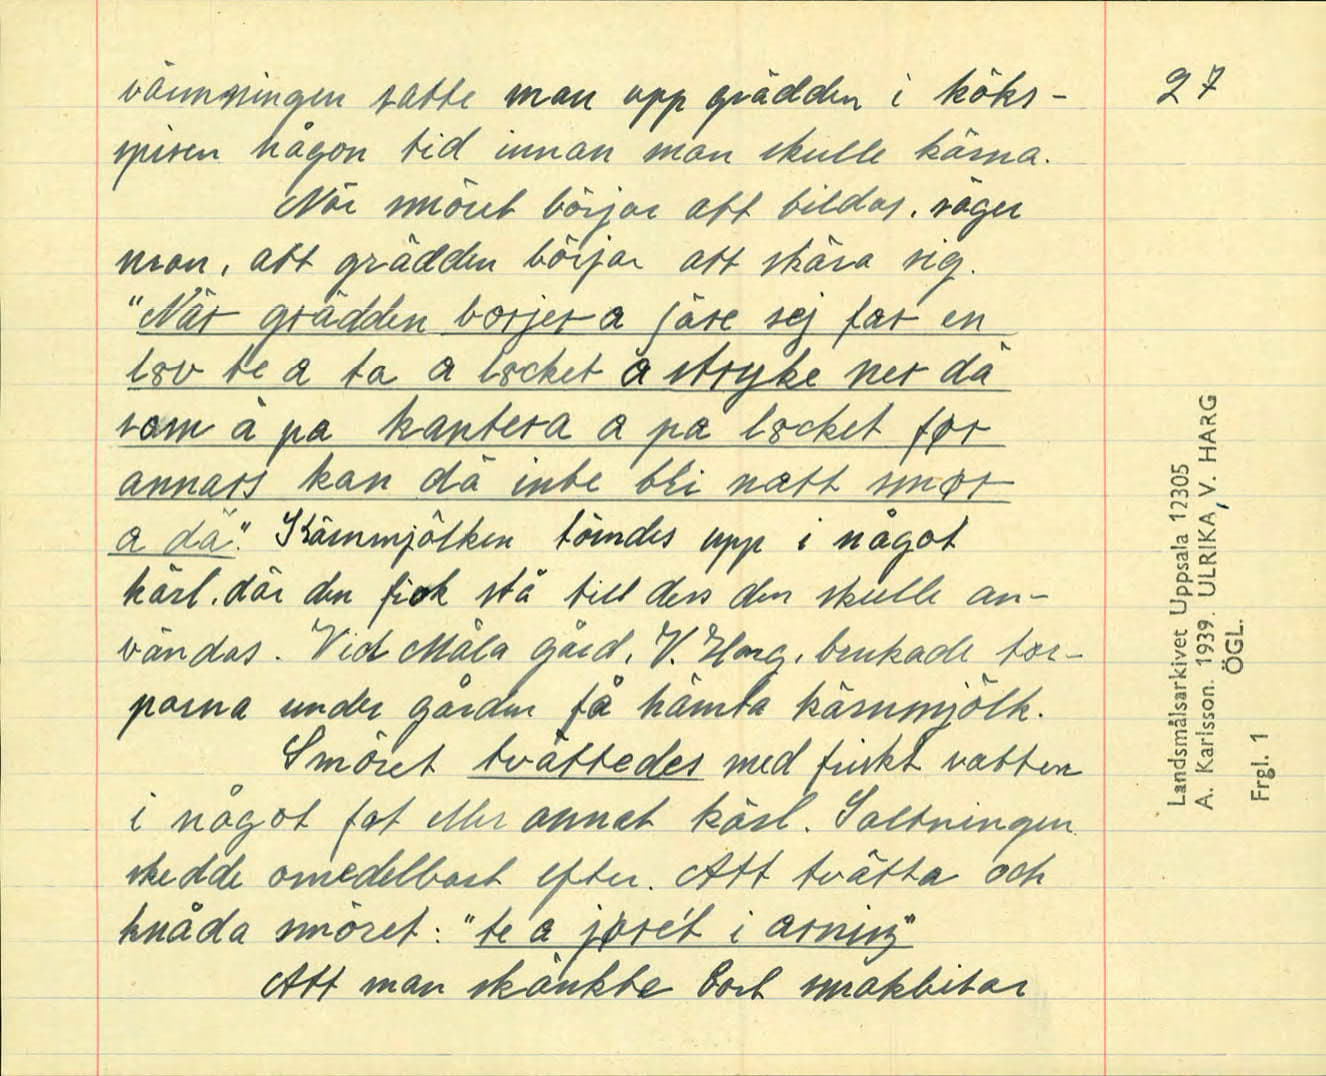 värmningen satte man upp grädden i köks-
spisen någon tid innan man skulle kärna.
När smöret börjar att bildas, säger
man, att grädden börjar att skära sig.
"När grädden borjer a ʃäre sej far en
lov te a ta a locket å stryke ner dä
som ä pa kantera a pa locket før
annars kan dä inte bli natt smør
a dä". Kärnmjölken tömdes upp i något
kärl, där den fick stå till dess den skulle an-
vändas. Vid Måla gård, V. Harg, brukade tor-
parna under gården få hämta kärnmjölk.
Smöret tvättedes med friskt vatten
i något fat eller annat kärl. Saltningen
skedde omedelbart efter. Att tvätta och
knåda smöret: "te a jøre't i arniŋ"
Att man skänkte bort smakbitar
27
Landsmålsarkivet Uppsala 12305
A. Karlsson. 1939. ULRIKA, V. HARG
ÖGL.
Frgl. 1